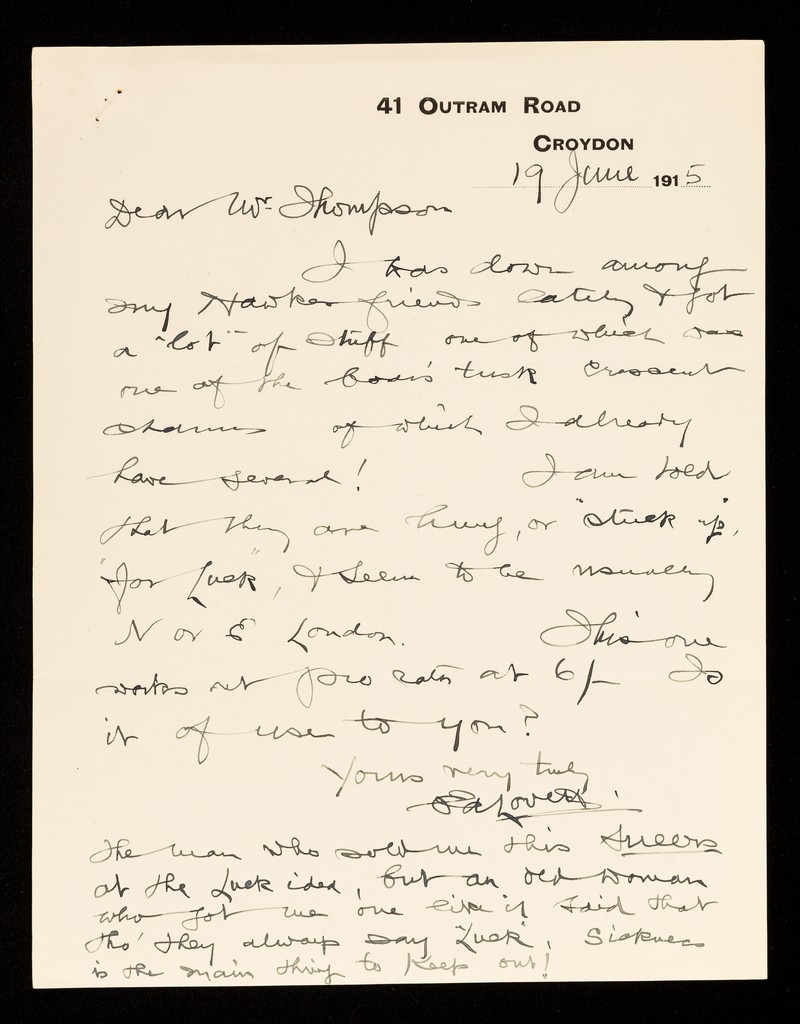 41 OUTRAM ROAD
CROYDON
19 June 1915
Dear Mr Thompson
I was down among
my Hawker friends lately & got
a "lot" of stuff one of which was
one of the boar's tusk crescent
charms of which I already
have several! I am told
that they are hung, or "stuck up",
"for Luck", & seem to be usually
N or E London. This one
works out pro rata at 6/- Is
it of use to you?
Yours very truly
Ed Lovett.
The man who sold me this sneers
at the Luck idea, but an old woman
who got me one like it said that
tho' they always say "Luck", Sickness
is the main thing to keep out!